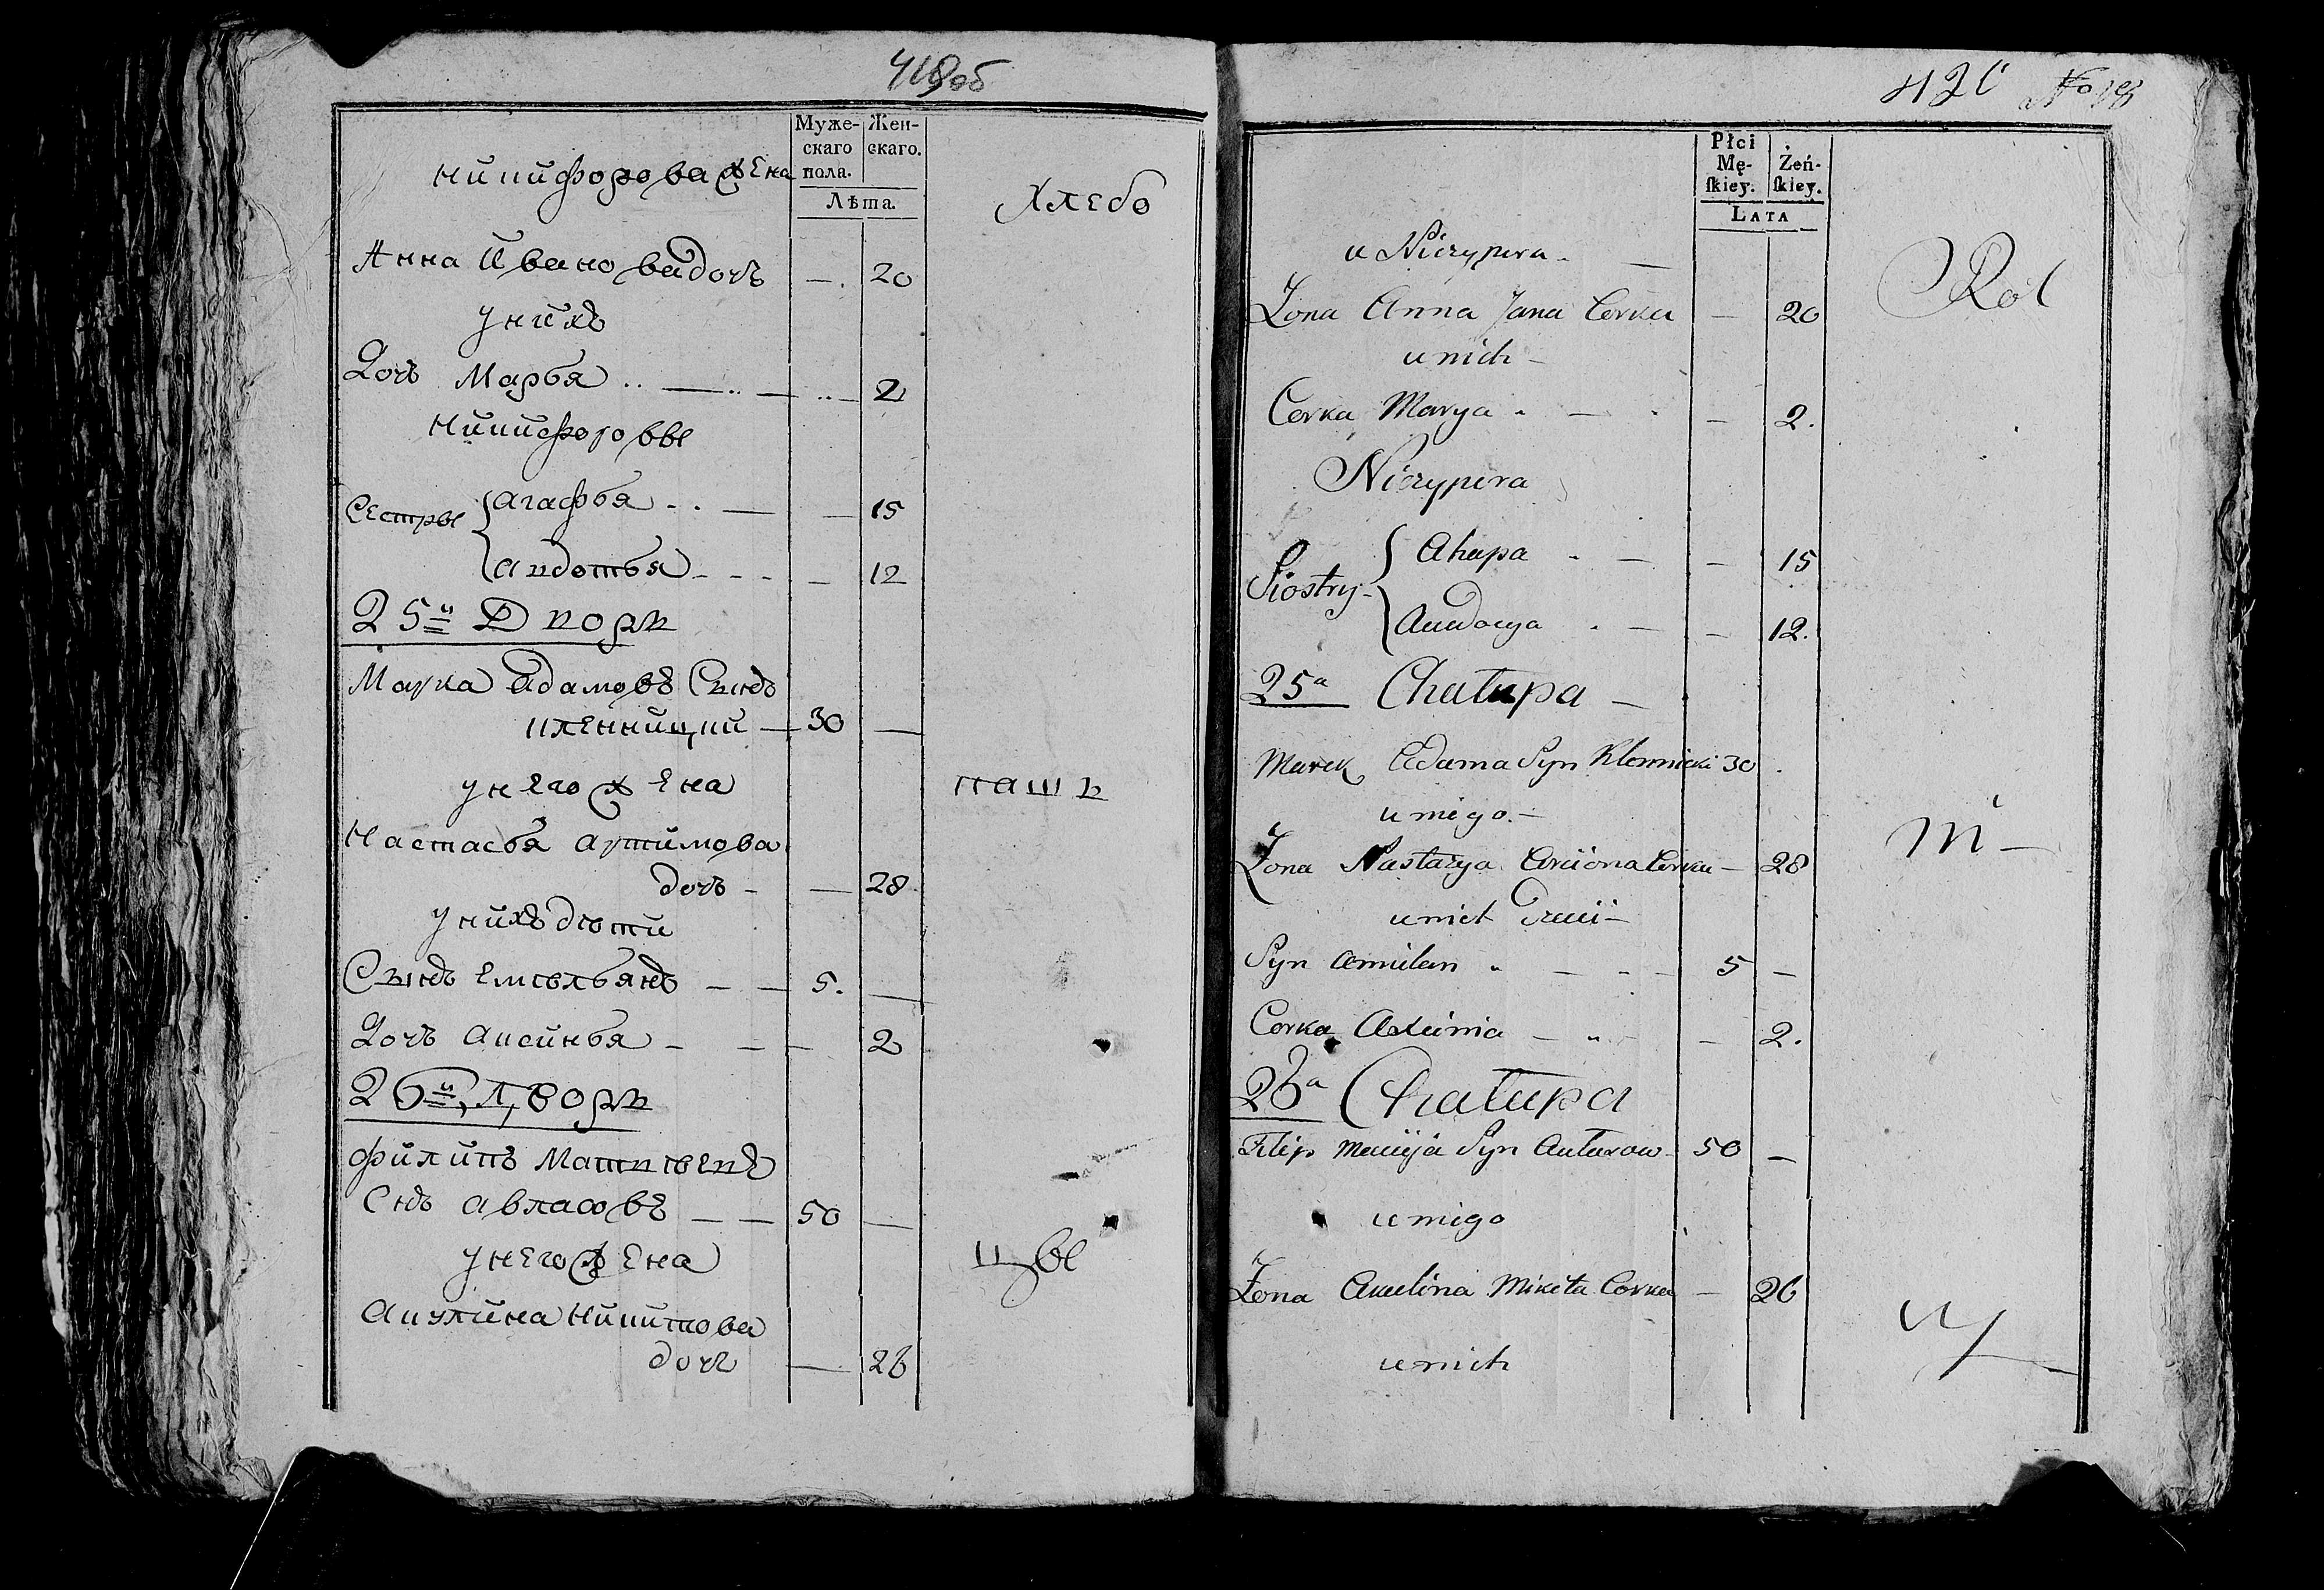 419об
Муже-
скаго
пола.
Жен-
скаго.
Лѣта.
никифорова жена
Хлебо
Анна Иванова дочъ — 20
у нихъ
Дочъ Марья — 2
Никифоровы
Сестры { агафья — 15
авдотья — 12
25й Дворъ
Марка адамовъ Сынъ
кленницкий — 30 —
у него жена
пашъ
Настасья артимова
дочъ — — 28
у нихъ дѣти
Сынъ емельянъ — 5. —
Дочъ аксинья — 2
26й Дворъ
филипъ Матвѣевъ
Снъ авласовъ — 50 —
у него жена
цы
Акулина Никитова
дочъ — 26
420 No
Płci
Mę-
ſkiey.
Żeń-
ſkiey.
LATA
u Niczypera —
Rol
Żona Anna Jana Corka — 20
u nich —
Corka Marya — 2.
Niczypera
Siostry { Ahapa — 15
Audocya — 12.
25a Chałupa —
Marek Adama Syn Klennicki 30
u niego. —
ni —
Żona Nastazya Corka — 28
u nich
Syn Amilan — 5 —
Corka Axinia — 2.
26a Chałupa
Filip Macieja Syn 50 —
u niego
Żona Akulina Mikita Corka — 26
u nich